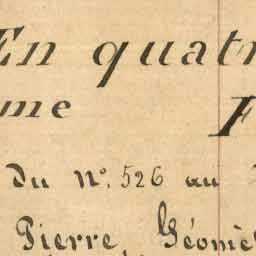 En quatr
me F
du N°. 526 au
Pierre, Géomè